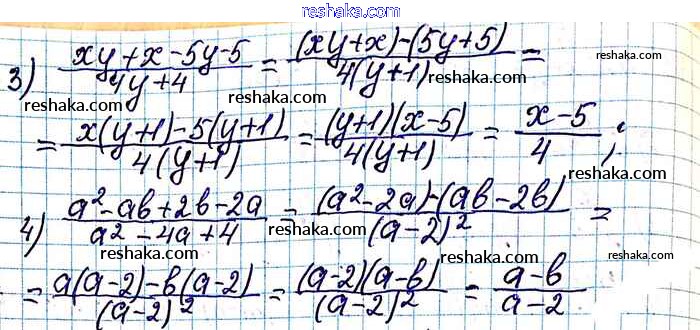 reshaka.com
3) (xy+x-5y-5)/(4y+4) = ((xy+x)-(5y+5))/(4(y+1)) =
reshaka.com reshaka.com reshaka.com
= (x(y+1)-5(y+1))/(4(y+1)) = ((y+1)(x-5))/(4(y+1)) = (x-5)/4;
reshaka.com reshaka.com reshaka.com
4) (a²-ab+2b-2a)/(a²-4a+4) = ((a²-2a)-(ab-2b))/((a-2)²) =
reshaka.com reshaka.com reshaka.com
= (a(a-2)-b(a-2))/((a-2)²) = ((a-2)(a-b))/((a-2)²) = (a-b)/(a-2)
reshaka.com reshaka.com reshaka.com